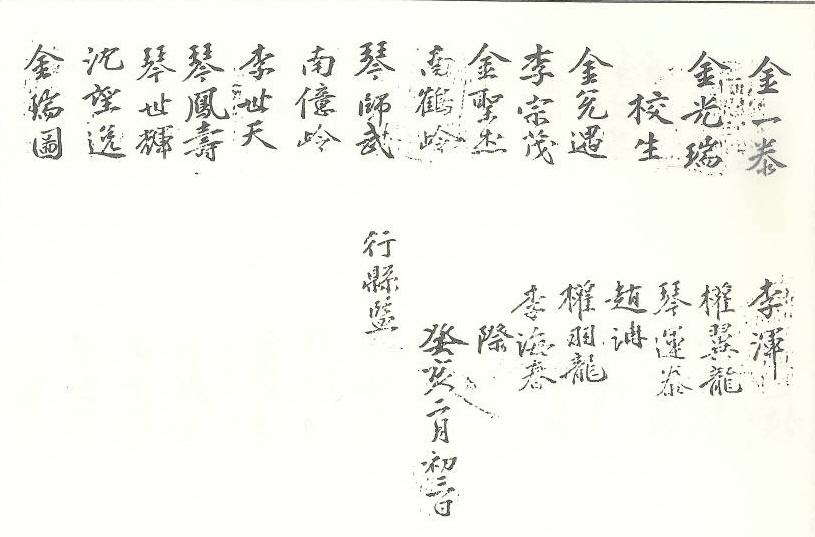 金一泰
金光瑞
校生
金冕遇
李宗茂
金聖杰
南鶴岭
琴師武
南億岭
李世天
琴鳳壽
琴世輝
沈望逸
金瑞圖
李渾
權翼龍
琴運泰
趙
權羽龍
李海春
際
癸亥二月初三日
行縣監